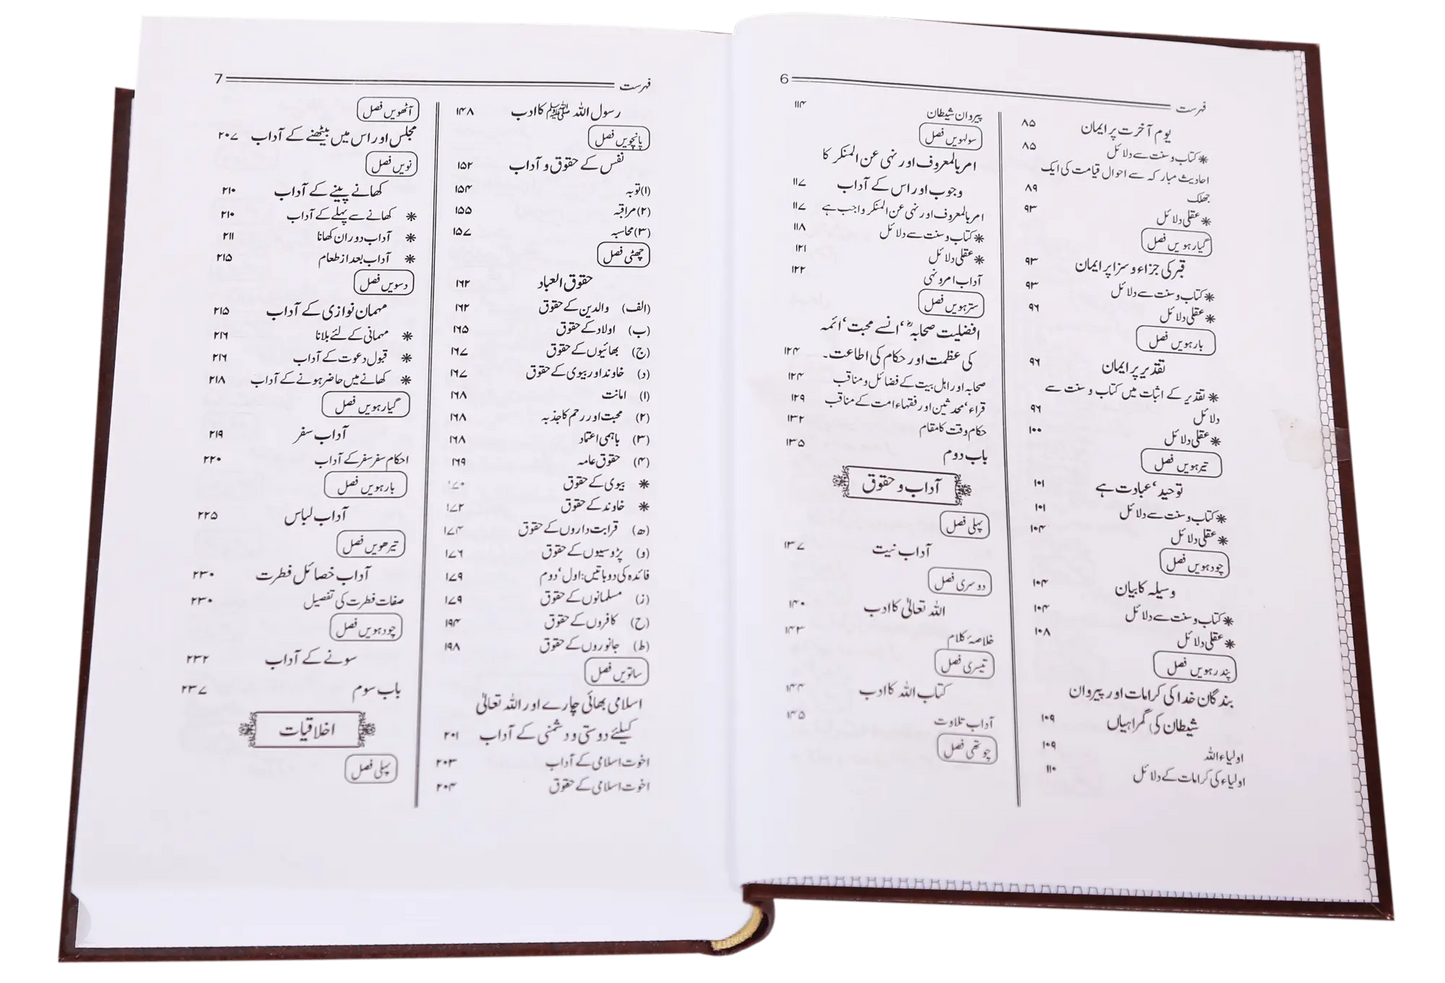 6
فہرست
یوم آخرت پر ایمان ۸۵
❋ کتاب و سنت سے دلائل ۸۵
احادیث مبارکہ سے احوال قیامت کی ایک
جھلک ۸۹
❋ عقلی دلائل ۹۳
گیارہویں فصل
قبر کی جزاء و سزا پر ایمان ۹۳
❋ کتاب و سنت سے دلائل ۹۳
❋ عقلی دلائل ۹۶
بارہویں فصل
تقدیر پر ایمان ۹۶
❋ تقدیر کے اثبات میں کتاب و سنت سے
دلائل ۹۶
❋ عقلی دلائل ۱۰۰
تیرہویں فصل
توحید ‘ عبادت ہے ۱۰۱
❋ کتاب و سنت سے دلائل ۱۰۱
❋ عقلی دلائل ۱۰۴
چودہویں فصل
وسیلہ کا بیان ۱۰۴
❋ کتاب و سنت سے دلائل ۱۰۴
❋ عقلی دلائل ۱۰۸
پندرہویں فصل
بندگان خدا کی کرامات اور پیروان
شیطان کی گمراہیاں ۱۰۹
اولیاء اللہ ۱۰۹
اولیاء کی کرامات کے دلائل ۱۱۰
پیروان شیطان ۱۱۴
سولہویں فصل
امر بالمعروف اور نہی عن المنکر کا
وجوب اور اس کے آداب ۱۱۷
امر بالمعروف اور نہی عن المنکر واجب ہے ۱۱۷
❋ کتاب و سنت سے دلائل ۱۱۸
❋ عقلی دلائل ۱۲۱
آداب امر و نہی ۱۲۲
سترہویں فصل
افضلیت صحابہؓ ‘ انسے محبت ‘ ائمہ
کی عظمت اور حکام کی اطاعت۔ ۱۲۴
صحابہ اور اہل بیت کے فضائل و مناقب ۱۲۴
قراء ‘ محدثین اور فقہاء امت کے مناقب ۱۲۹
حکام وقت کا مقام ۱۳۲
باب دوم ۱۳۵
آداب و حقوق
پہلی فصل
آداب نیت ۱۳۷
دوسری فصل
اللہ تعالیٰ کا ادب ۱۴۰
خلاصۂ کلام ۱۴۳
تیسری فصل
کتاب اللہ کا ادب ۱۴۴
آداب تلاوت ۱۴۵
چوتھی فصل
7
فہرست
رسول اللہ ﷺ کا ادب ۱۴۸
پانچویں فصل
نفس کے حقوق و آداب ۱۵۲
(۱) توبہ ۱۵۴
(۲) مراقبہ ۱۵۵
(۳) محاسبہ ۱۵۷
چھٹی فصل
حقوق العباد ۱۶۲
(الف) والدین کے حقوق ۱۶۲
(ب) اولاد کے حقوق ۱۶۵
(ج) بھائیوں کے حقوق ۱۶۷
(د) خاوند اور بیوی کے حقوق ۱۶۷
(۱) امانت ۱۶۸
(۲) محبت اور رحم کا جذبہ ۱۶۸
(۳) باہمی اعتماد ۱۶۸
(۴) حقوق عامہ ۱۶۹
❋ بیوی کے حقوق ۱۷۰
❋ خاوند کے حقوق ۱۷۲
(ھ) قرابت داروں کے حقوق ۱۷۴
(و) پڑوسیوں کے حقوق ۱۷۶
فائدہ کی دو باتیں: اول ‘ دوم ۱۷۹
(ز) مسلمانوں کے حقوق ۱۷۹
(ح) کافروں کے حقوق ۱۹۴
(ط) جانوروں کے حقوق ۱۹۸
ساتویں فصل
اسلامی بھائی چارے اور اللہ تعالیٰ
کیلئے دوستی و دشمنی کے آداب ۲۰۱
اخوت اسلامی کے آداب ۲۰۳
اخوت اسلامی کے حقوق ۲۰۴
آٹھویں فصل
مجلس اور اس میں بیٹھنے کے آداب ۲۰۷
نویں فصل
کھانے پینے کے آداب ۲۱۰
❋ کھانے سے پہلے کے آداب ۲۱۰
❋ آداب دوران کھانا ۲۱۱
❋ آداب بعد از طعام ۲۱۵
دسویں فصل
مہمان نوازی کے آداب ۲۱۵
❋ مہمانی کے لئے بلانا ۲۱۶
❋ قبول دعوت کے آداب ۲۱۶
❋ کھانے میں حاضر ہونے کے آداب ۲۱۸
گیارہویں فصل
آداب سفر ۲۱۹
احکام سفر سفر کے آداب ۲۲۰
بارہویں فصل
آداب لباس ۲۲۵
تیرھویں فصل
آداب خصائل فطرت ۲۳۰
صفات فطرت کی تفصیل ۲۳۰
چودہویں فصل
سونے کے آداب ۲۳۲
باب سوم ۲۳۷
اخلاقیات
پہلی فصل